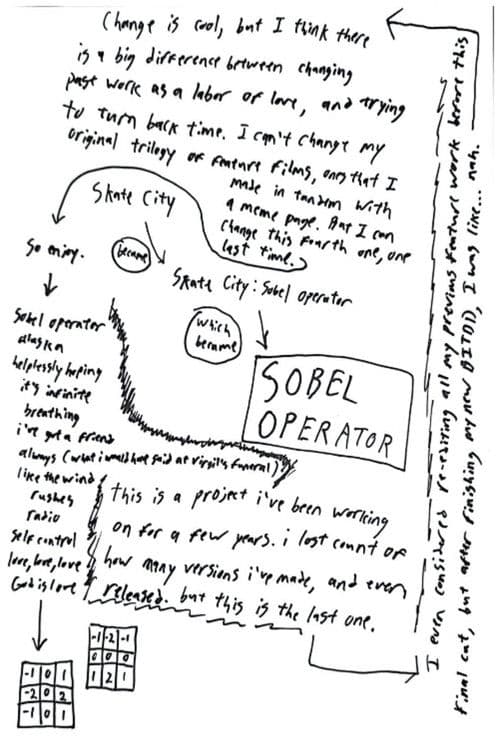 Change is cool, but I think there
is a big difference between changing
past work as a labor of love, and trying
to turn back time. I can't change my
original trilogy of feature films, ones that I
made in tandem with
a meme page. But I can
change this fourth one, one
last time.
Skate City
became
Skate City: Sobel operator
which
became
SOBEL
OPERATOR
So enjoy.
Sobel operator
alaska
helplessly hoping
it's infinite
breathing
i've got a friend
always (what i would have said at virgil's funeral)
like the wind
rushes
radio
self control
love, love, love
God is love
This is a project i've been working
on for a few years. i lost count of
how many versions i've made, and even
released. but this is the last one.
I even considered re-editing all my previous feature work before this
final cut, but after finishing my new I was like... nah.
-1 0 1
-2 0 2
-1 0 1
-1 -2 -1
0 0 0
1 2 1